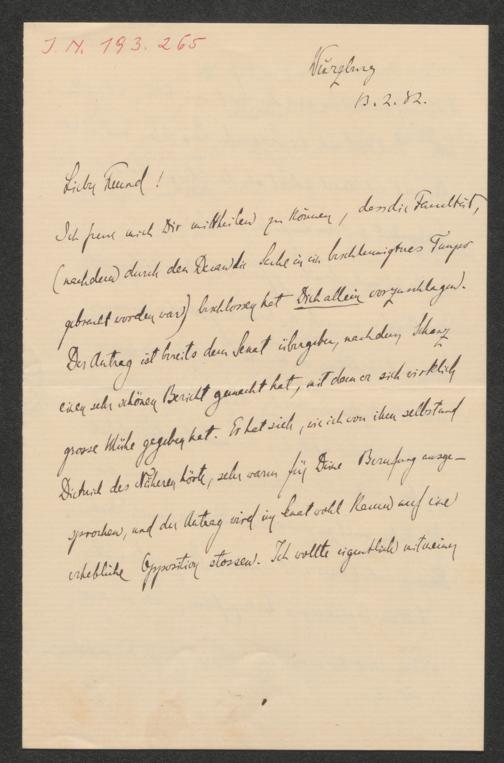 J. N. 193.265
Würzburg
13.2.82.
Lieber Freund!
Ich freue mich Dir mittheilen zu können, dass die Facultät,
(nachdem durch den Decan die Sache in ein beschleunigteres Tempo
gebracht worden war) beschlossen hat Dich allein vorzuschlagen.
Der Antrag ist bereits dem Senat übergeben, nachdem Schanz
einen sehr schönen Bericht gemacht hat, mit dem er sich wirklich
grosse Mühe gegeben hat. Er hat sich, wie ich von ihm selbst und
des Näheren hörte, sehr warm für Deine Berufung ausge-
sprochen, und der Antrag wird im Senat wohl kaum auf eine
erhebliche Opposition stossen. Ich wollte eigentlich mit meiner